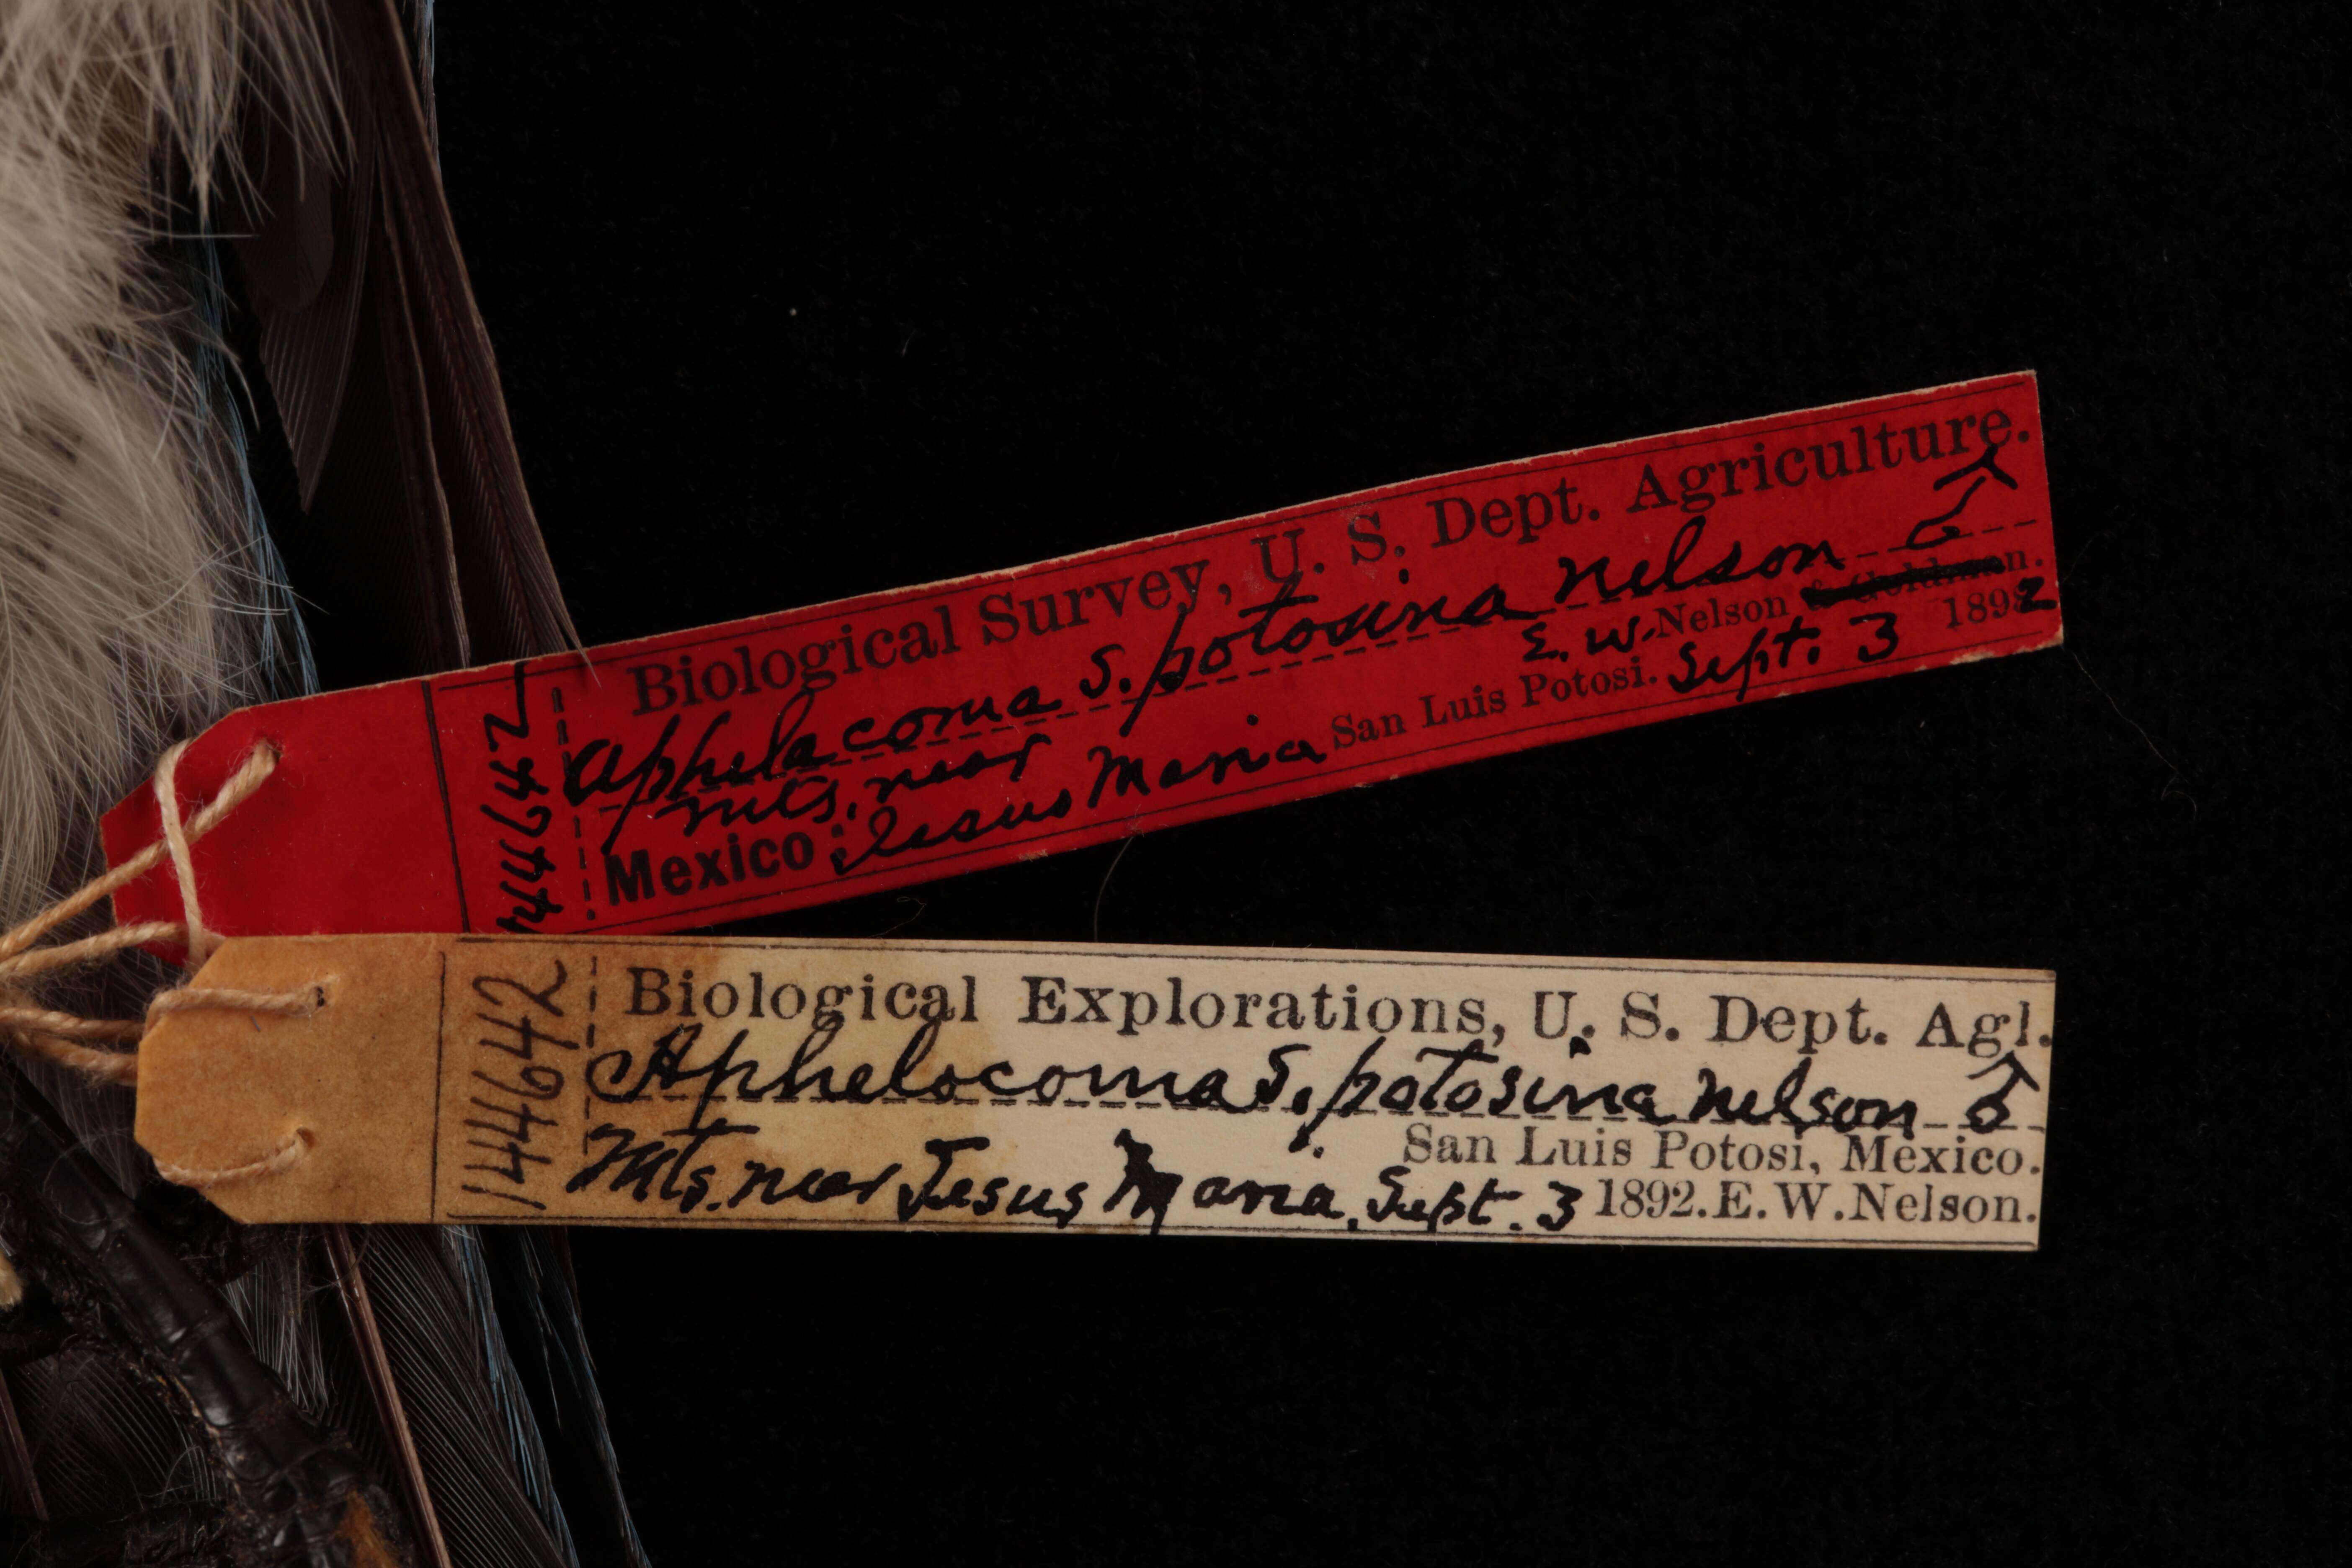 Biological Survey, U. S. Dept. Agriculture.
144642
Aphelocoma s. potosina nelson ♂
mts. near E. W. Nelson & Goldman.
Mexico: Jesus Maria San Luis Potosi. Sept. 3 1892
Biological Explorations, U. S. Dept. Agl.
144642
Aphelocoma s. potosina nelson ♂
San Luis Potosi, Mexico.
Mts. near Jesus Maria. Sept. 3 1892. E. W. Nelson.